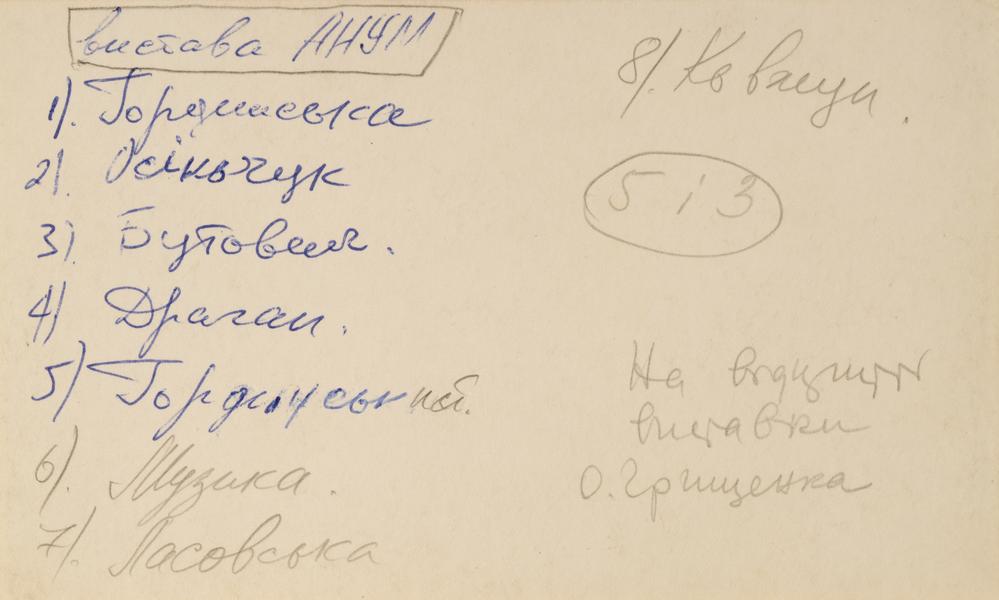 вистава АНУМ
1). Гординська
2). Осінчук
3) Бутович.
4) Драган.
5) Гординський.
6). Музика.
7). Ласовська
8). Ковжун.
5 і 3
На відкритті
виставки
О. Грищенка